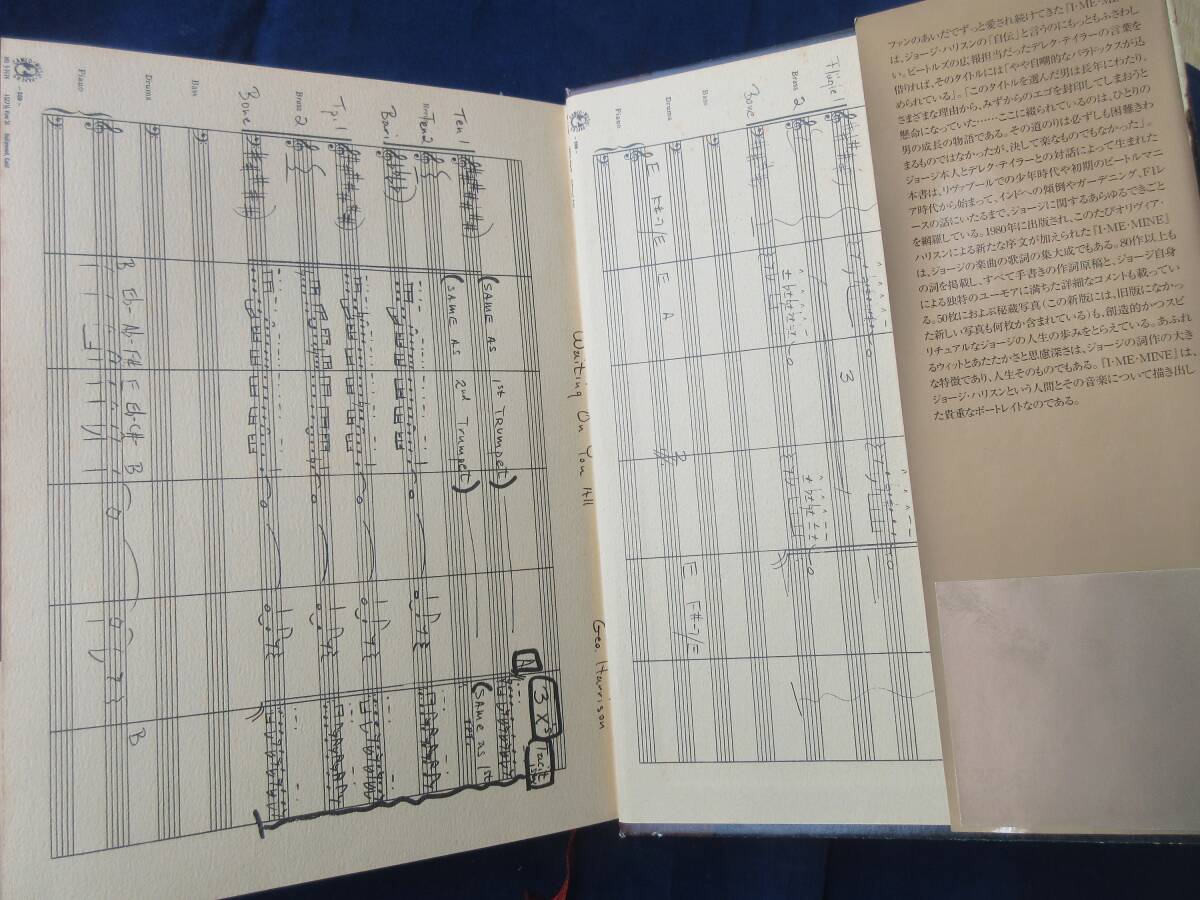 Waiting On You All
Geo. Harrison
Ten 1
Ten 2
Bari
Tp. 1
Brass 2
Bone
Bass
Drums
Piano
(SAME AS 1st TRUMPET)
(SAME AS 2nd TRUMPET)
A
3 X's
Tacit
(SAME as 1st
B
B
Flugie 1
Brass 2
Bone
Bass
Drums
Piano
3
E F#-7/E E A
E F#-7/E
ファンのあいだでずっと愛され続けてきた『I・ME・MINE』
は、ジョージ・ハリスンの「自伝」と言うのにもっともふさわし
い。ビートルズの広報担当だったデレク・テイラーの言葉を
借りれば、そのタイトルには「やや自嘲的なパラドックスが込
められている」。「このタイトルを選んだ男は長年にわたり、
さまざまな理由から、みずからのエゴを封印してしまおうと
懸命になっていた……ここに綴られているのは、ひとりの
男の成長の物語である。その道のりは必ずしも困難きわ
まるものではなかったが、決して楽なものでもなかった」。
ジョージ本人とデレク・テイラーとの対話によって生まれた
本書は、リヴァプールでの少年時代や初期のビートルマニ
ア時代から始まって、インドへの傾倒やガーデニング、F1レ
ースの話にいたるまで、ジョージに関するあらゆるできごと
を網羅している。1980年に出版され、このたびオリヴィア・
ハリスンによる新たな序文が加えられた『I・ME・MINE』
は、ジョージの楽曲の歌詞の集大成でもある。80作以上も
の詞を掲載し、すべて手書きの作詞原稿と、ジョージ自身
による独特のユーモアに満ちた詳細なコメントも載ってい
る。50枚におよぶ秘蔵写真(この新版には、旧版になかっ
た新しい写真も何枚か含まれている)も、創造的かつスピ
リチュアルなジョージの人生の歩みをとらえている。あふれ
るウィットとあたたかさと思慮深さは、ジョージの詞作の大き
な特徴であり、人生そのものでもある。『I・ME・MINE』は、
ジョージ・ハリスンという人間とその音楽について描き出し
た貴重なポートレイトなのである。